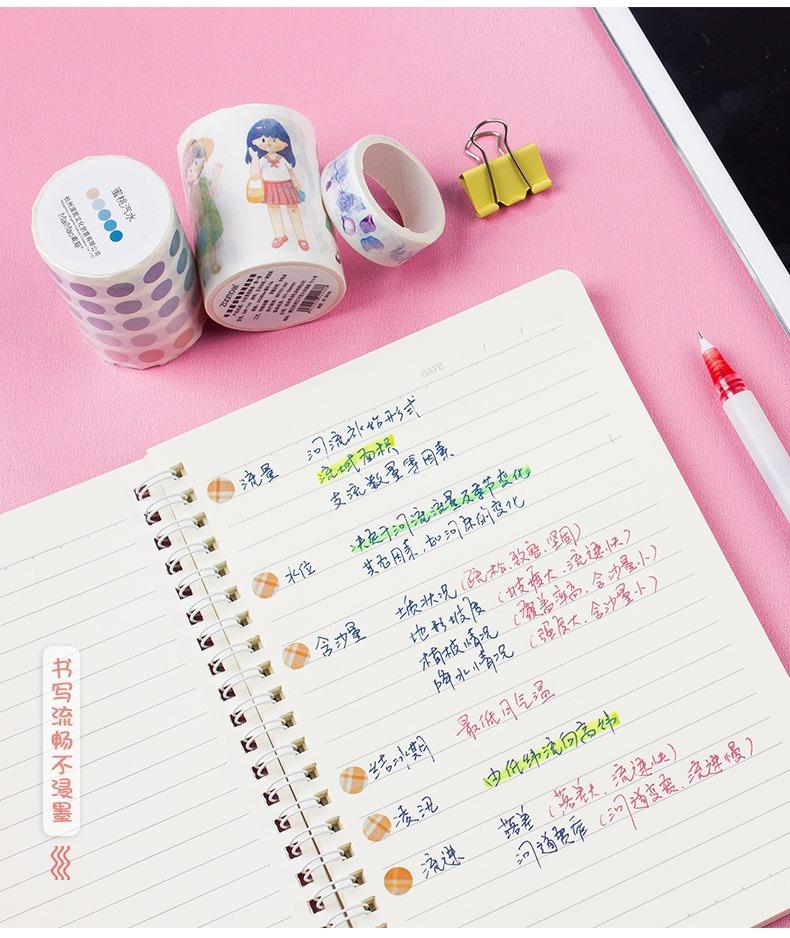 蜜桃汽水
DATE.
河流补给形式
流量
流域面积
支流数量等因素
决定于河流流量及季节变化
水位
其它因素,如河床的变化
含沙量
土壤状况(疏松,致密、坚固)
地形坡度(坡度大、流速快)
植被情况(覆盖率高,含沙量小)
降水情况(强度大、含沙量小)
最低月气温
结冰期
由低纬流向高纬
凌汛
流速
落差(落差大、流速快)
河道宽窄(河道变宽、流速慢)
书写流畅不浸墨